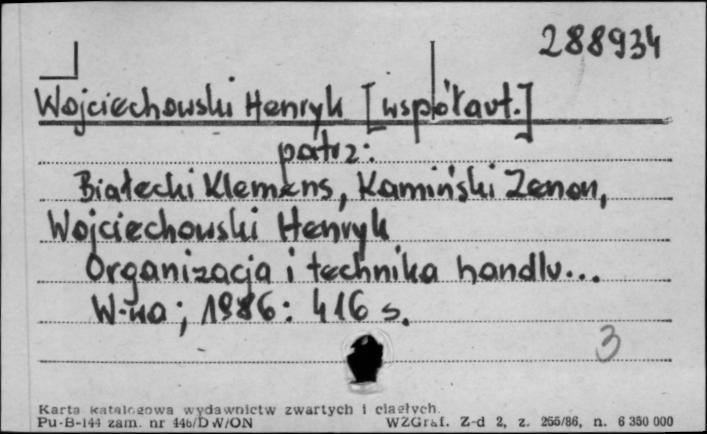 288934
Wojciechowski Henryk [współaut.]
patrz:
Białecki Klemens, Kamiński Zenon,
Wojciechowski Henryk
Organizacja i technika handlu...
W-wa; 1986: 416 s.
3
Karta katalogowa wydawnictw zwartych i ciągłych.
Pu-B-144 zam. nr 446/DW/ON WZGraf. Z-d 2, z. 255/86, n. 6 350 000